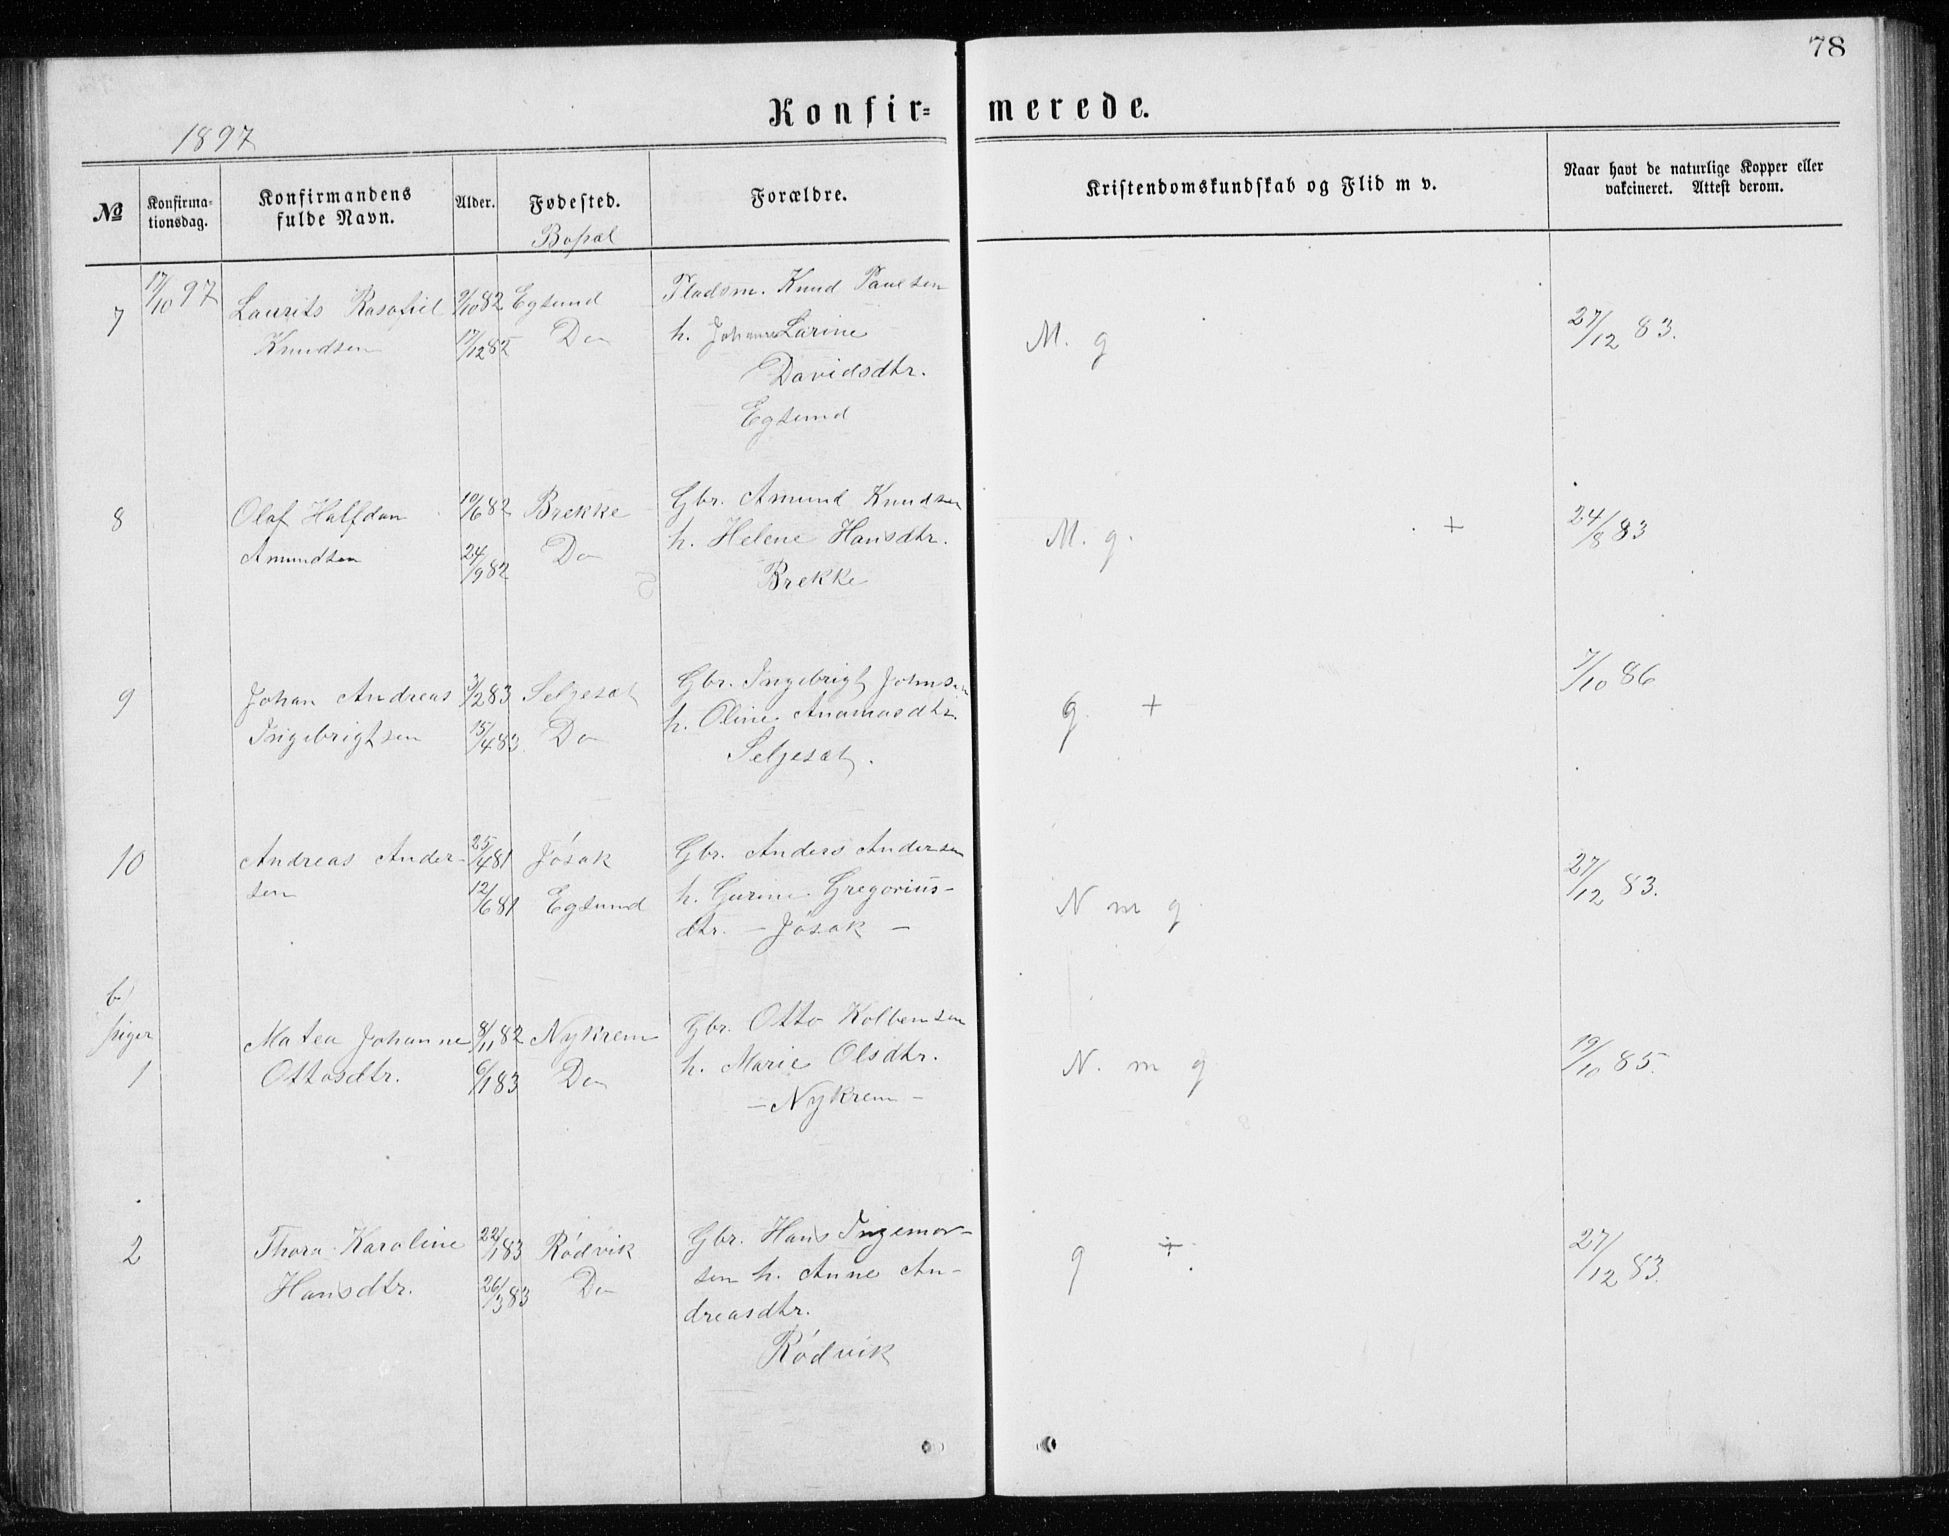 78
Konfir= merede.
1897
№ Konfirma-tionsdag. Konfirmandens fulde Navn. Alder. Fødested. Forældre. Kristendomskundskab og Flid m v. Naar havt de naturlige Kopper eller vakcineret. Attest derom.
Bopæl
7 17/10 97 Laurits 9/10 82 Egsund Pladsm. Knud Paulsen
Knudsen 17/12 82 Do h. Johanne Larine M. g 27/12 83.
Davidsdtr.
Egsund
8 Olaf Halfdan 10/6 82 Brekke Gbr. Amund Knudsen
Amundsen 24/9 82 Do h. Helene Hansdtr. M. g. + 24/8 83
Brekke
9 Johan Andreas 3/2 83 Seljesæt Gbr. Ingebrigt Johnsen 7/10 86
Ingebrigtsen 15/4 83 Do h. Oline g +
Seljesæt.
10 Andreas Ander- 25/4 81 Jøsok Gbr. Anders Andersen
sen 12/6 81 Egsund h. Gurine Gregorius- N m g 27/12 83.
dtr. - Jøsok -
b)
piger
1 Matea Johanne 8/11 82 Nykrem Gbr. Otto Kolbensen
Ottosdtr. 6/1 83 Do h. Marie Olsdtr. N. m g 19/10 85.
- Nykrem -
2 Thora Karoline 22/1 83 Rødvik Gbr. Hans Ingemor-
Hansdtr. 26/3 83 Do sen h. Anne An- g ÷ 27/12 83.
dreasdtr.
Rødvik